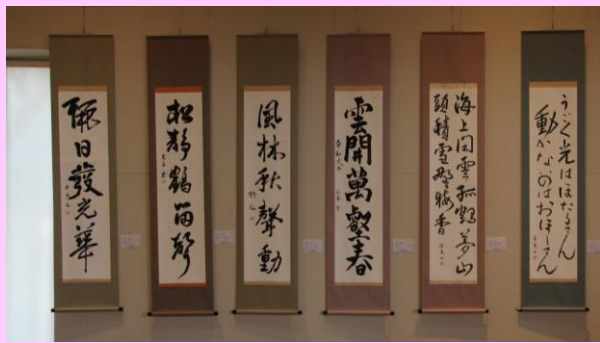 麗日發光華
松静鶴留聲
風林秋聲動
雲開萬壑春
海上閑雲孤鶴夢山
頭積雪野梅香
うごく光はほたるさん
動かないのはおほしさん